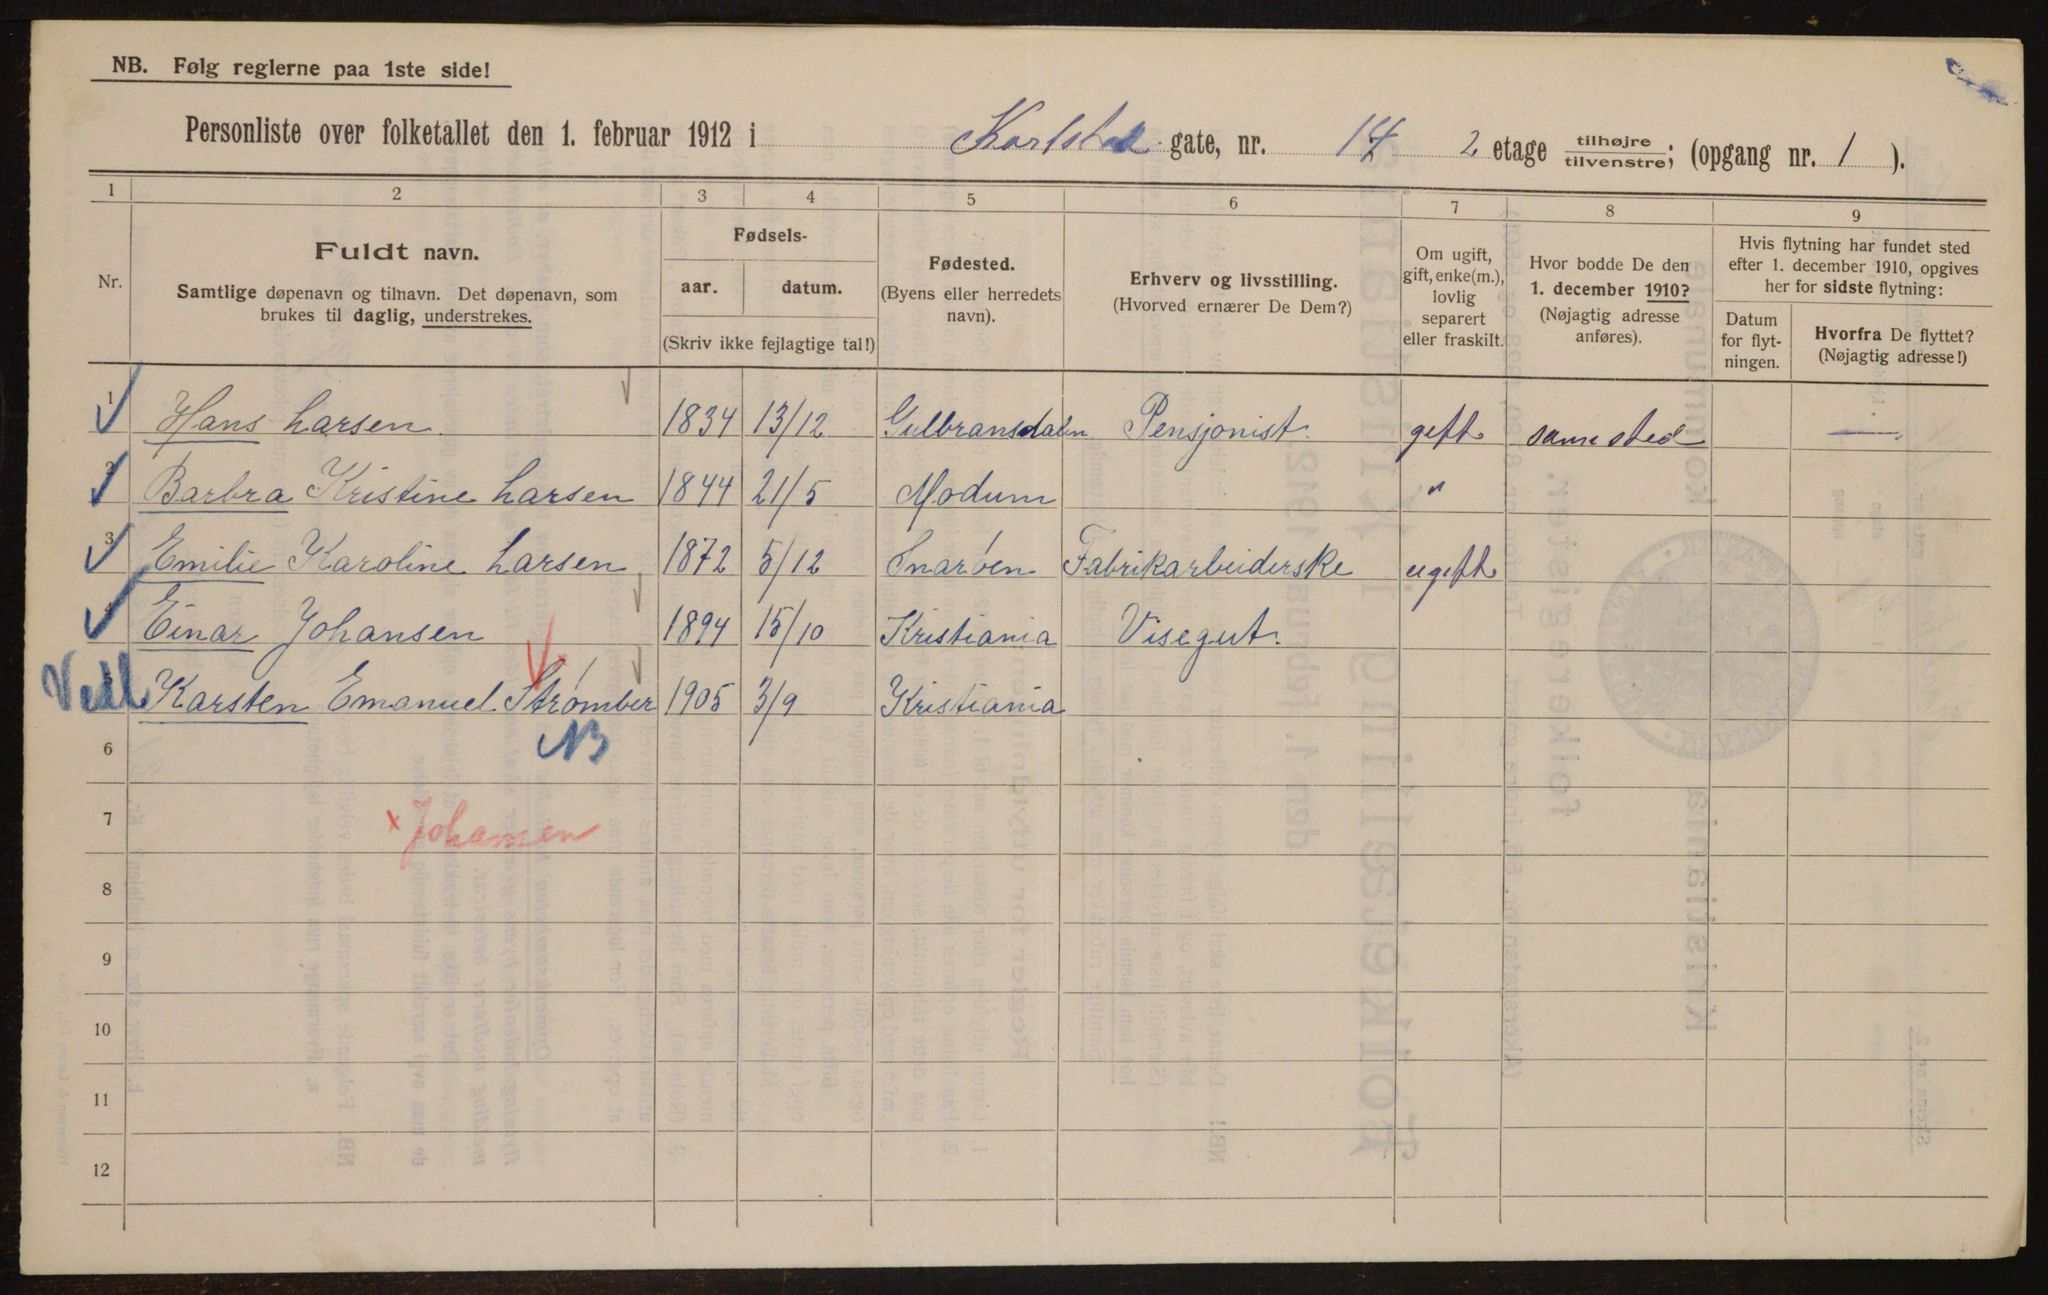 NB. Følg reglerne paa 1ste side!
Personliste over folketallet den 1. februar 1912 i Karlstad gate, nr. 14 2 etage tilhøjre tilvenstre; (opgang nr. 1 ).
1 2 3 4 5 6 7 8 9
Nr.
Fuldt navn.
Samtlige døpenavn og tilnavn. Det døpenavn, som
brukes til daglig, understrekes.
Fødsels-
aar. datum.
(Skriv ikke fejlagtige tal!)
Fødested.
(Byens eller herredets
navn).
Erhverv og livsstilling.
(Hvorved ernærer De Dem?)
Om ugift,
gift, enke(m.),
lovlig
separert
eller fraskilt.
Hvor bodde De den
1. december 1910?
(Nøjagtig adresse
anføres).
Hvis flytning har fundet sted
efter 1. december 1910, opgives
her for sidste flytning:
Datum
for flyt-
ningen.
Hvorfra De flyttet?
(Nøjagtig adresse!)
1 Hans Larsen 1834 13/12 Gulbransdalen Pensjonist. gift samested —
2 Barbra Kristine Larsen 1844 21/5 Modum "
3 Emilie Karoline Larsen 1872 5/12 Snarøen Fabrikarbeiderske ugift
Einar Johansen 1894 15/10 Kristiania Visegut.
Karsten Emanuel Strømber 1905 3/9 Kristiania
NB
6
7 x Johansen
8
9
10
11
12